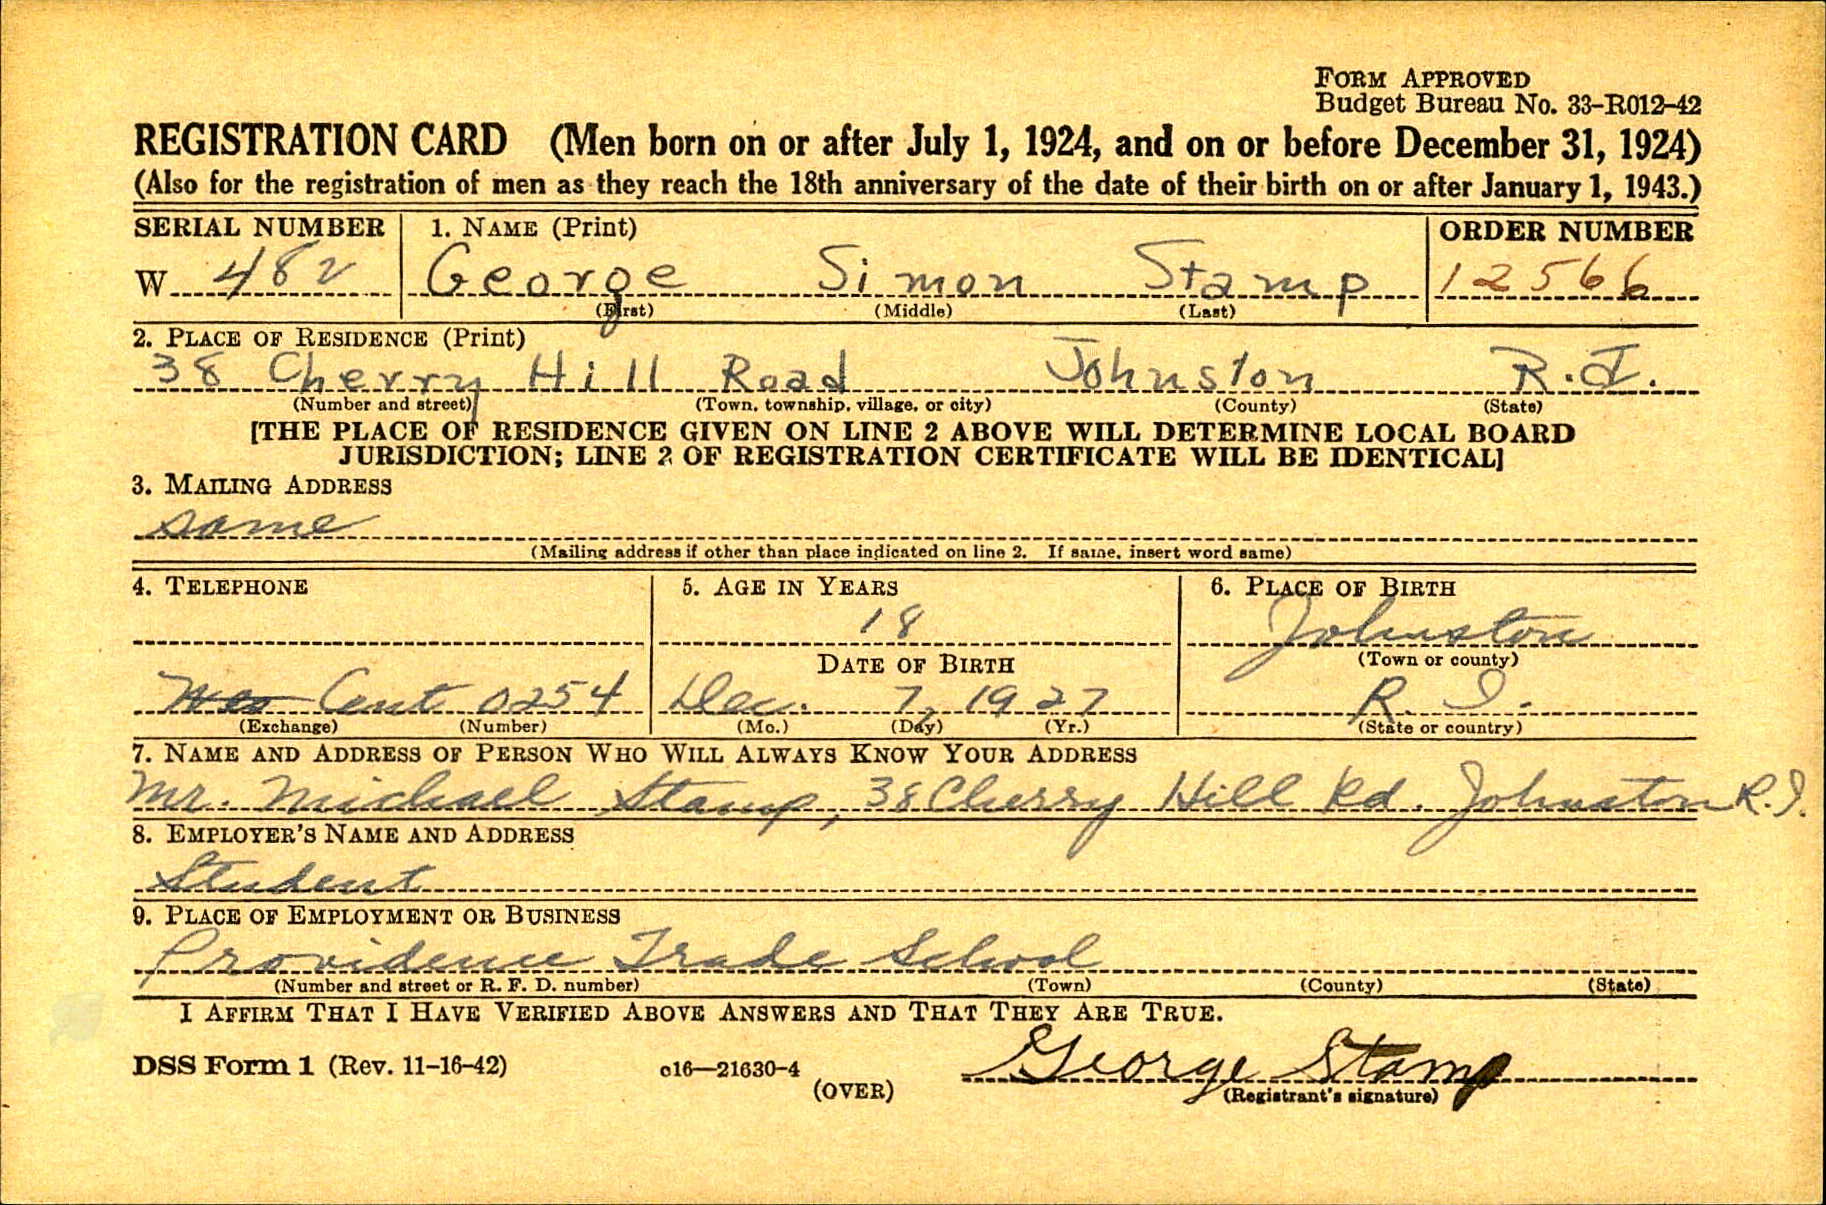 FORM APPROVED
Budget Bureau No. 33-R012-42
REGISTRATION CARD (Men born on or after July 1, 1924, and on or before December 31, 1924)
(Also for the registration of men as they reach the 18th anniversary of the date of their birth on or after January 1, 1943.)
SERIAL NUMBER 1. NAME (Print) ORDER NUMBER
W 482 George Simon Stamp 12566
(First) (Middle) (Last)
2. PLACE OF RESIDENCE (Print)
38 Cherry Hill Road Johnston R.I.
(Number and street) (Town, township, village, or city) (County) (State)
[THE PLACE OF RESIDENCE GIVEN ON LINE 2 ABOVE WILL DETERMINE LOCAL BOARD
JURISDICTION; LINE 2 OF REGISTRATION CERTIFICATE WILL BE IDENTICAL]
3. MAILING ADDRESS
same
(Mailing address if other than place indicated on line 2. If same, insert word same)
4. TELEPHONE 5. AGE IN YEARS 6. PLACE OF BIRTH
18 Johnston
DATE OF BIRTH (Town or county)
Cent 0254 Dec. 7, 1927 R. I.
(Exchange) (Number) (Mo.) (Day) (Yr.) (State or country)
7. NAME AND ADDRESS OF PERSON WHO WILL ALWAYS KNOW YOUR ADDRESS
Mr. Michael Stamp, 38 Cherry Hill Rd. Johnston R.I.
8. EMPLOYER'S NAME AND ADDRESS
Student
9. PLACE OF EMPLOYMENT OR BUSINESS
Providence Trade School
(Number and street or R. F. D. number) (Town) (County) (State)
I AFFIRM THAT I HAVE VERIFIED ABOVE ANSWERS AND THAT THEY ARE TRUE.
DSS Form 1 (Rev. 11-16-42) c16—21630-4 George Stamp
(OVER) (Registrant's signature)